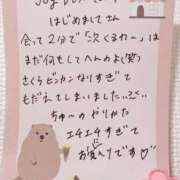 はじめましてさん
会って2分で「次くるわー」は
まだ何もしてへんのよ(笑)
さくらピンカンなりすぎて
もだえてしまいました
ちゅーのやりかた
エチエチすぎて
お気入りです♡